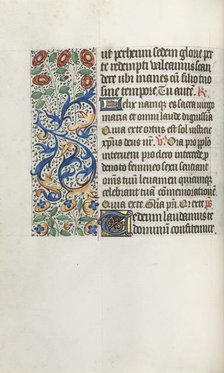 ut ꝑ verbum sedem glorie per
te redempti valeamus scan
dere ubi manes cu͂ filio tuo
sine tempore. Tu aute͂. R͂
Felix namqꝫ es sacra uirgo
maria et omni laude dignissima
Quia exte ortus est sol iusticie
xp͂us deus nr͂. V͂. Ora pro pp͂lo
interueni pro clero intercede p
deuoto femineo sexu senciant
omnes tuu͂ leuamen quicumqꝫ
celebrant tua͂ co͂memoratione͂.
Quia exte. Glia pr͂i. Ors exte p͂s
Te deum laudamus te
dominum confitemur.